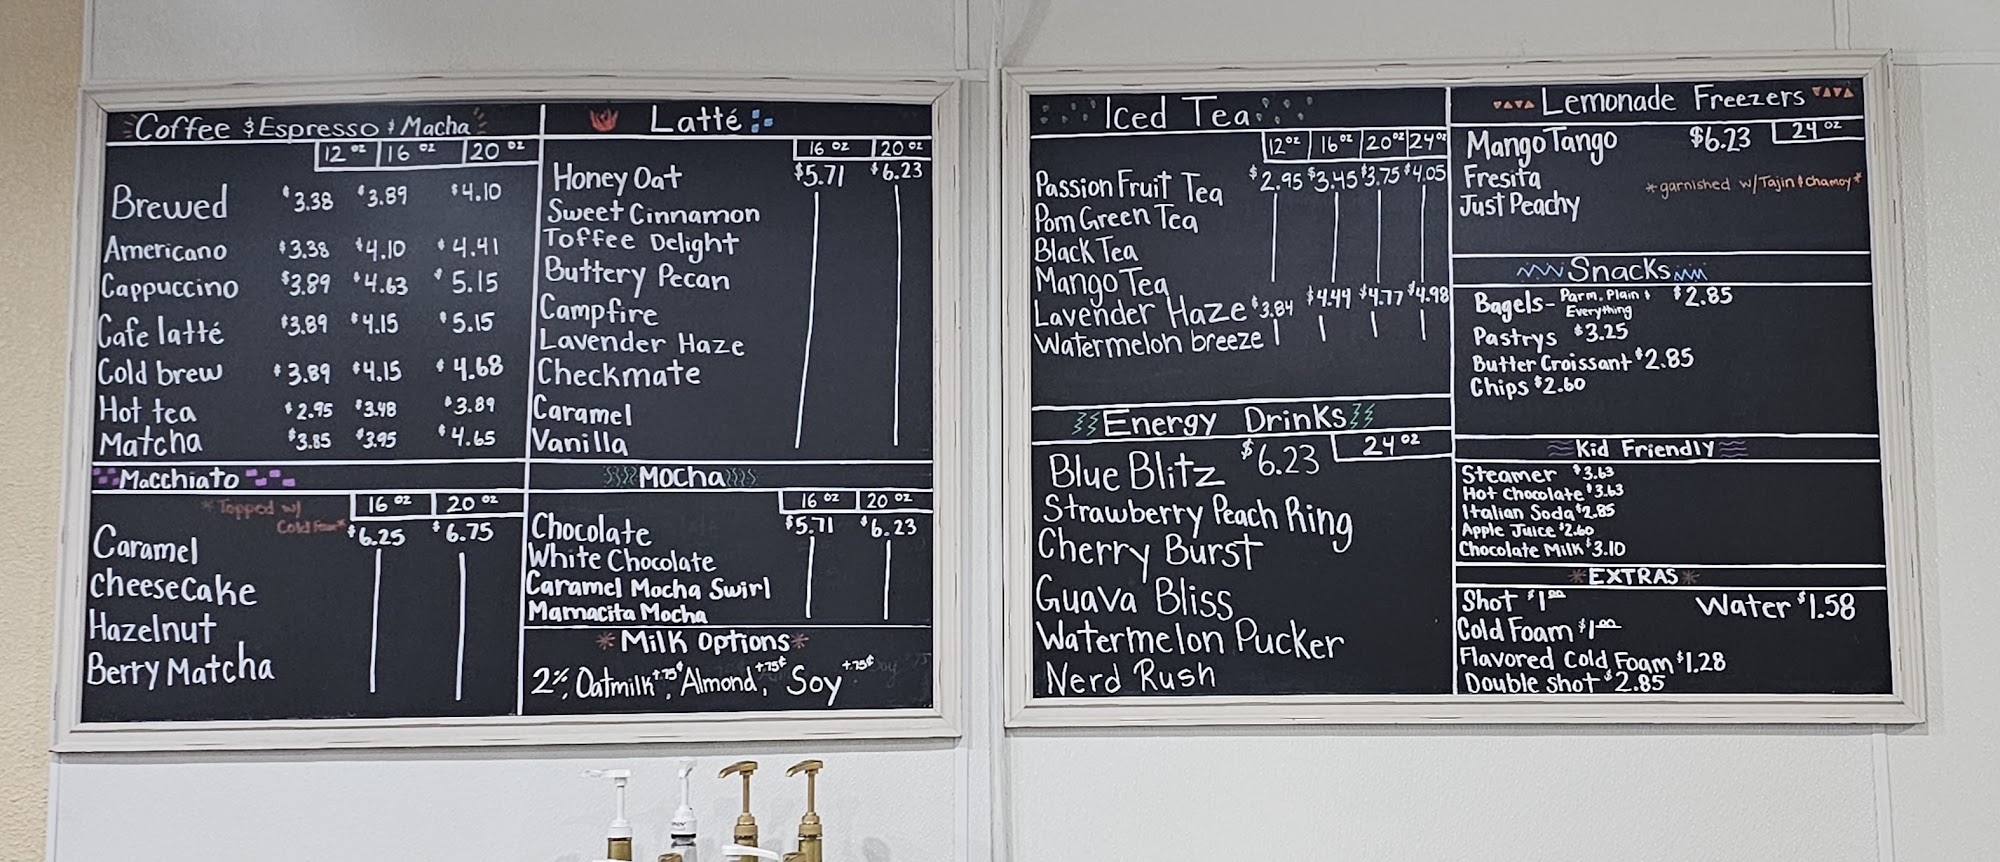 Coffee & Espresso & Macha
12 oz 16 oz 20 oz
Brewed $3.38 $3.89 $4.10
Americano $3.38 $4.10 $4.41
Cappuccino $3.89 $4.63 $5.15
Cafe latté $3.89 $4.15 $5.15
Cold brew $3.89 $4.15 $4.68
Hot tea $2.95 $3.48 $3.89
Matcha $3.85 $3.95 $4.65
Macchiato
*Topped w/
Cold Foam*
16 oz 20 oz
$6.25 $6.75
Caramel
CheeseCake
Hazelnut
Berry Matcha
Latté
16 oz 20 oz
Honey Oat $5.71 $6.23
Sweet Cinnamon
Toffee Delight
Buttery Pecan
Campfire
Lavender Haze
Checkmate
Caramel
Vanilla
Mocha
16 oz 20 oz
Chocolate $5.71 $6.23
White Chocolate
Caramel Mocha Swirl
Mamacita Mocha
*Milk Options*
2%, Oatmilk +.75¢, Almond +.75¢, Soy +.75¢
Iced Tea
12oz 16oz 20oz 24oz
Passion Fruit Tea $2.95 $3.45 $3.75 $4.05
Pom Green Tea
Black Tea
Mango Tea
Lavender Haze $3.84 $4.44 $4.77 $4.98
Watermelon breeze
Energy Drinks
24 oz
Blue Blitz $6.23
Strawberry Peach Ring
Cherry Burst
Guava Bliss
Watermelon Pucker
Nerd Rush
Lemonade Freezers
Mango Tango $6.23 24 oz
Fresita
*garnished w/Tajin & Chamoy*
Just Peachy
Snacks
Bagels- Parm, Plain & Everything $2.85
Pastrys $3.25
Butter Croissant $2.85
Chips $2.60
Kid Friendly
Steamer $3.63
Hot Chocolate $3.63
Italian Soda $2.85
Apple Juice $2.60
Chocolate Milk $3.10
*EXTRAS*
Shot $1.00 Water $1.58
Cold Foam $1.00
Flavored Cold Foam $1.28
Double Shot $2.85